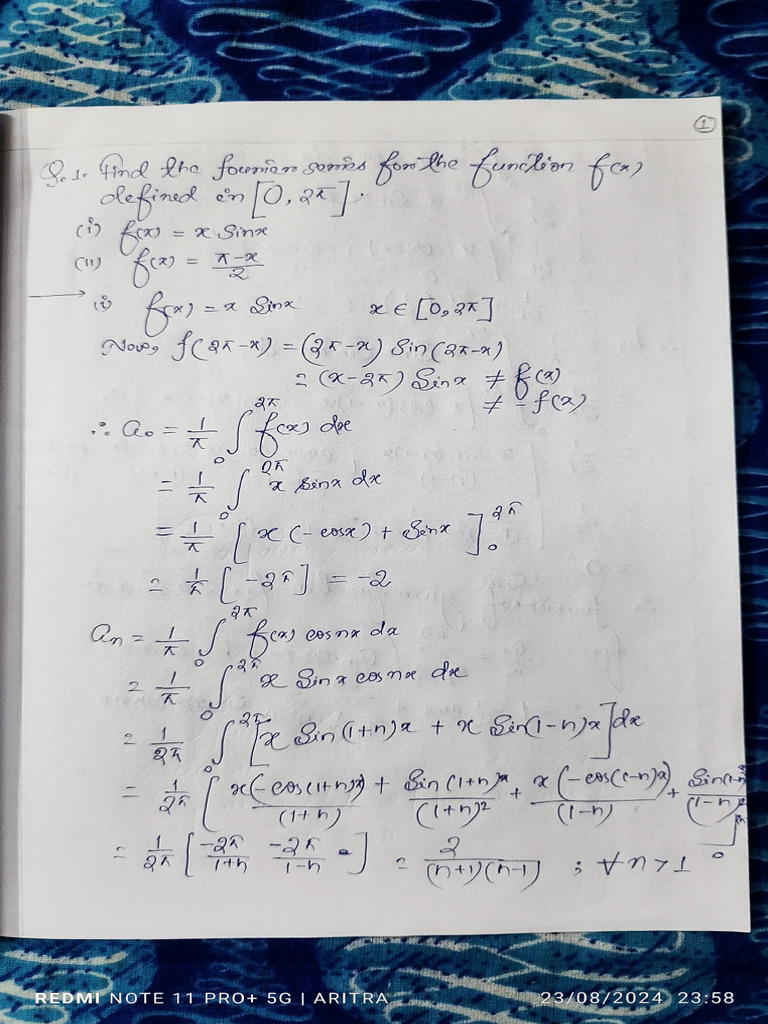 ①
Q.1. Find the fourier series for the function f(x)
defined in [0, 2π].
(i) f(x) = x Sinx
(ii) f(x) = π-x/2
→ (i) f(x) = x Sinx x ∈ [0, 2π]
Now, f(2π-x) = (2π-x) Sin(2π-x)
= (x-2π) Sinx ≠ f(x)
≠ -f(x)
∴ a₀ = 1/π ∫₀^2π f(x) dx
= 1/π ∫₀^2π x Sinx dx
= 1/π [x(-cosx) + Sinx]₀^2π
= 1/π [-2π] = -2
aₙ = 1/π ∫₀^2π f(x) cosnx dx
= 1/π ∫₀^2π x Sinx cosnx dx
= 1/2π ∫₀^2π [x Sin(1+n)x + x Sin(1-n)x] dx
= 1/2π [x(-cos(1+n)x)/(1+n) + Sin(1+n)x/(1+n)² + x(-cos(1-n)x)/(1-n) + Sin(1-n)x/(1-n)²]₀^2π
= 1/2π [-2π/1+n -2π/1-n] = 2/(n+1)(n-1) ; ∀ n > 1
REDMI NOTE 11 PRO+ 5G | ARITRA 23/08/2024 23:58